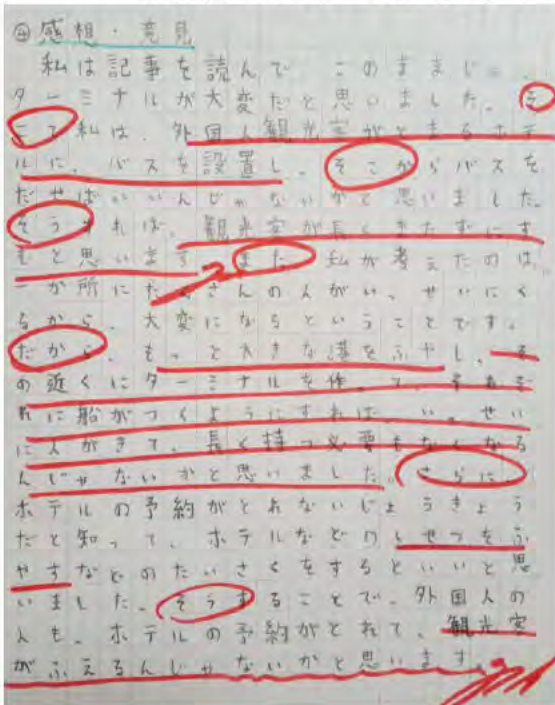 ④感想・意見
私は記事を読んで、このままじゃ、
ターミナルが大変だと思いました。そ
こで私は、外国人観光客がとまるホテ
ルに、バスを設置し、そこからバスを
だせばいいんじゃないかと思いました。
そうすれば、観光客が長くまたずにす
むと思います。また、私が考えたのは、
一か所にたくさんの人がいっせいにく
るから、大変になるということです。
だから、もっと大きな港をふやし、
の近くにターミナルを作って、それぞ
れに船がつくようにすれば、いっせい
に人がきて、長く持つ必要もなくなる
んじゃないかと思いました。さらに、
ホテルの予約がとれないじょうきょう
だと知って、ホテルなどのしせつをふ
やすなどのたいさくをするといいと思
いました。そうすることで、外国人の
人も、ホテルの予約がとれて、観光客
がふえるんじゃないかと思います。